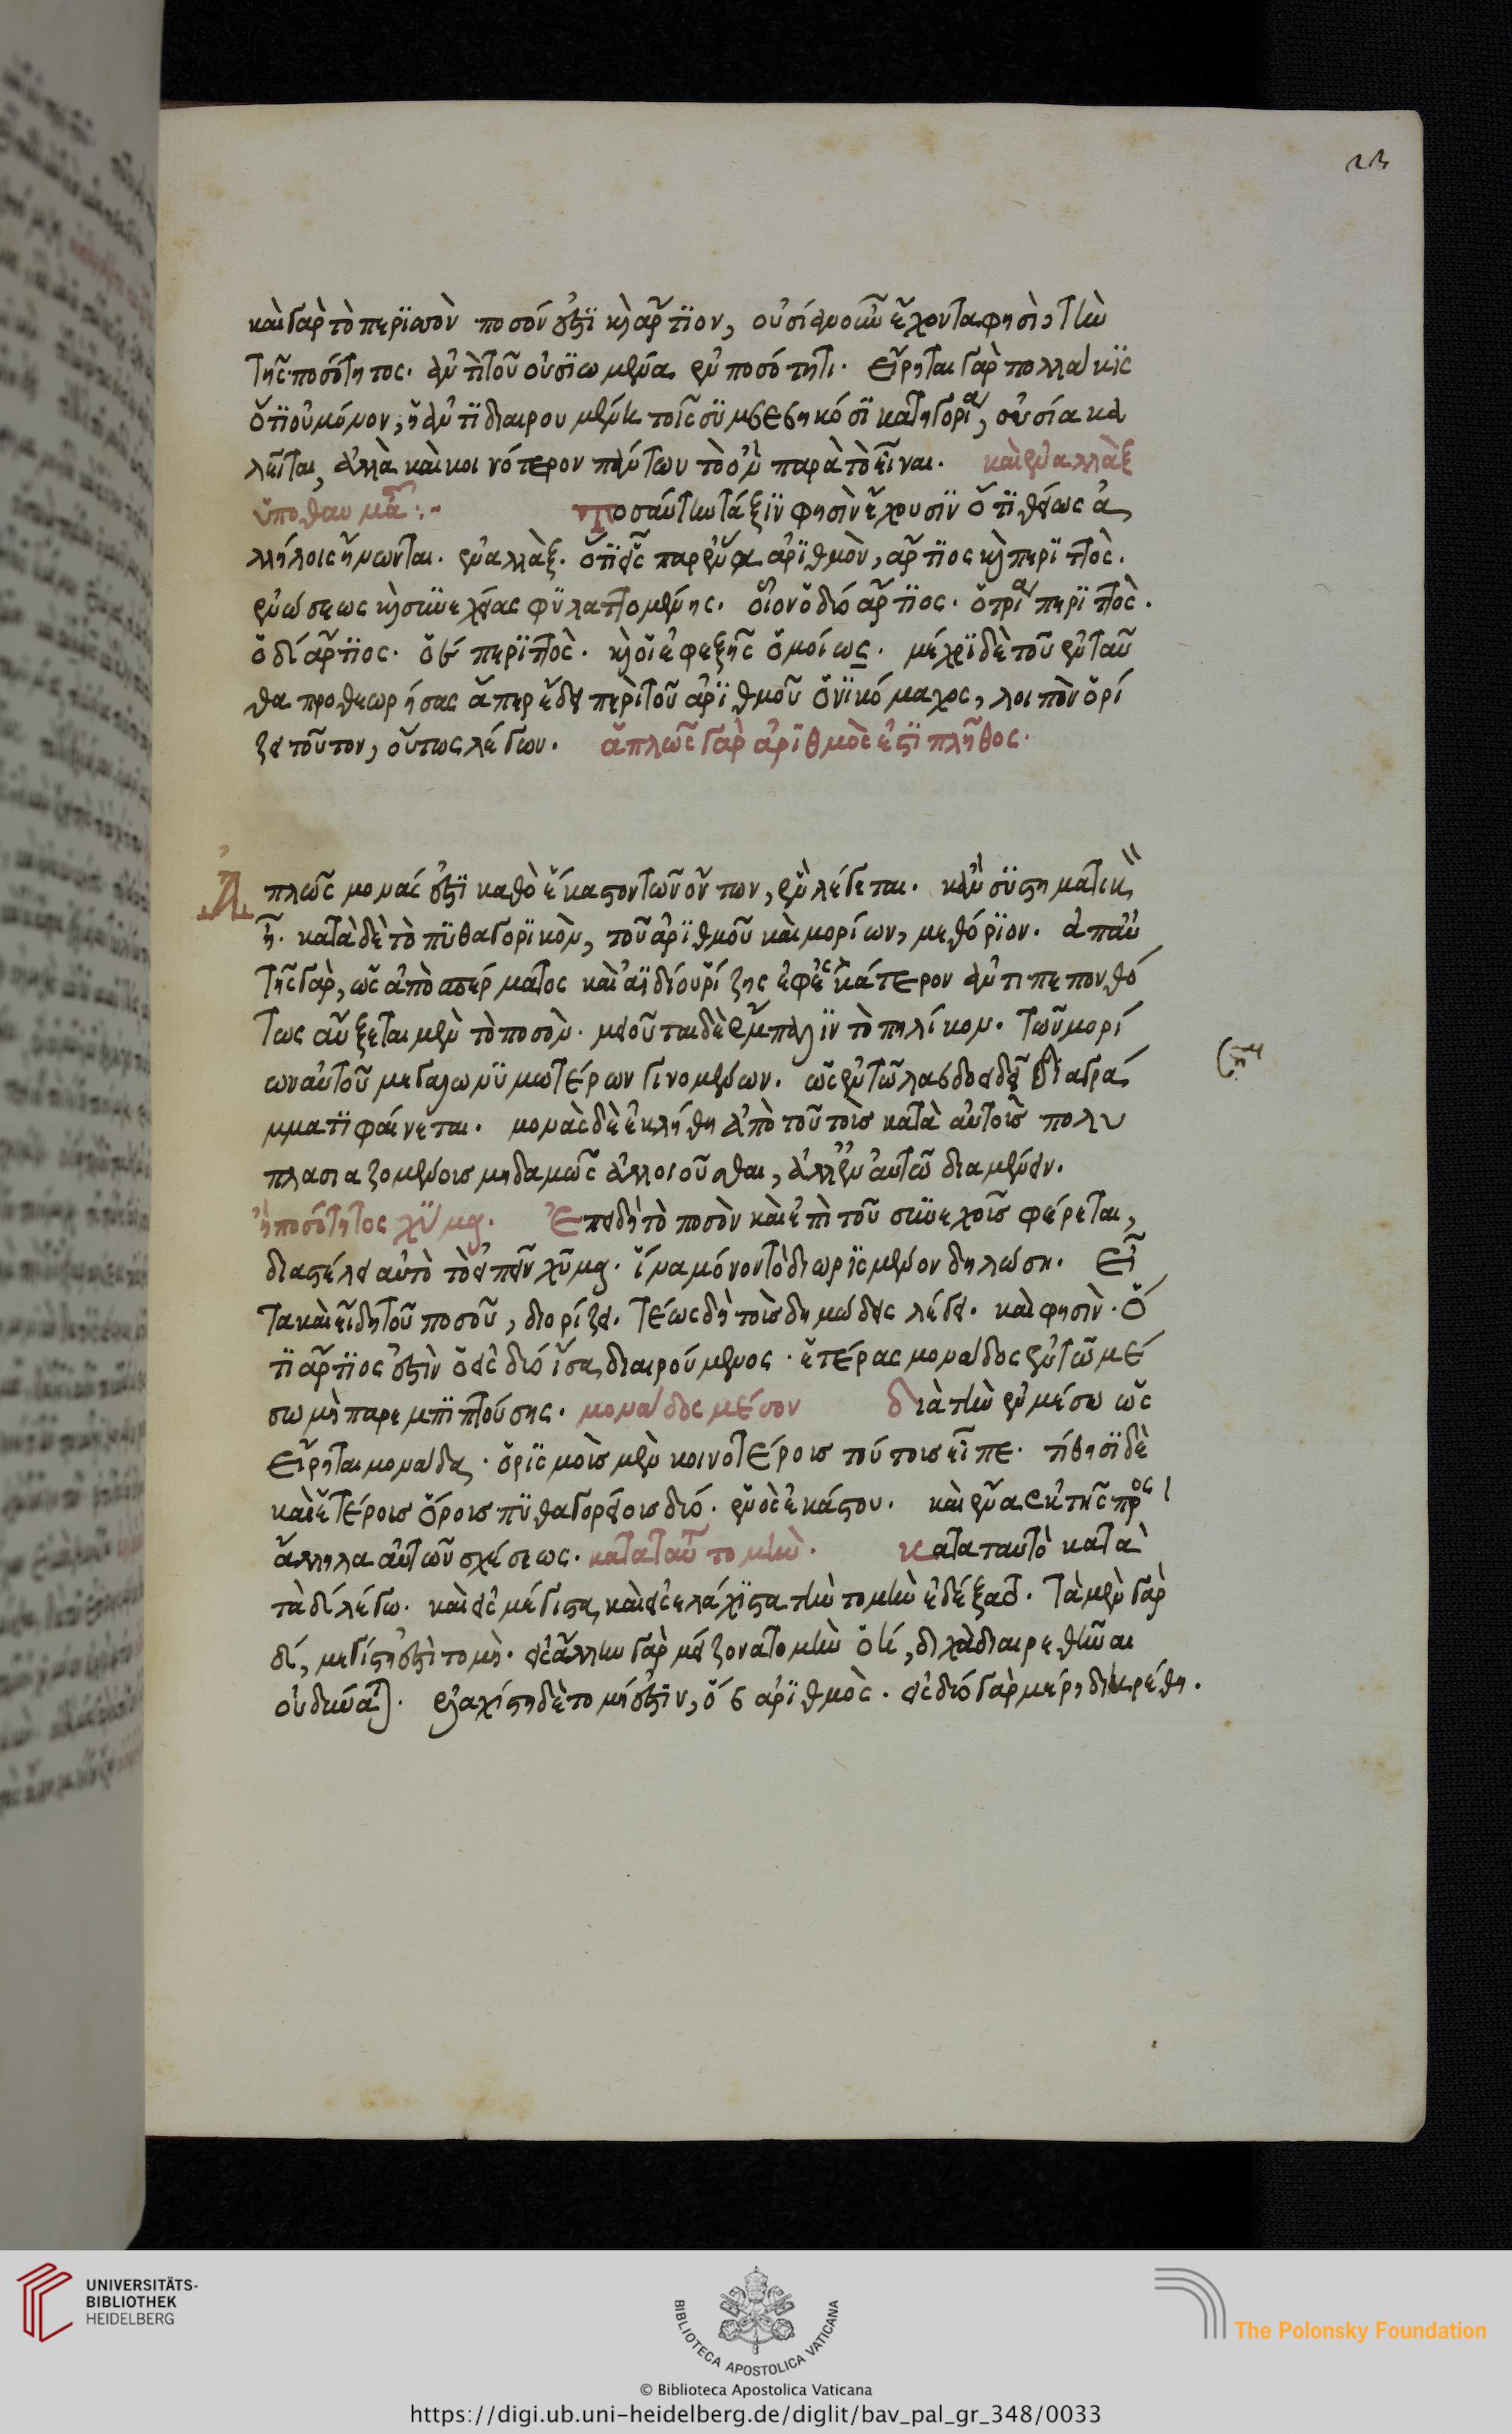 23
καὶ γὰρ τὸ περϊσσὸν ποσόν ἐστϊ κ̀ ἄρτϊον, οὐσίαν οὖν ἔχοντα φησὶ, τὴν
τῆς ποσότητος. ἀντὶ τοῦ οὐσϊωμένα ἐν ποσότητι. εἴρηται γὰρ πολλάκϊς
ὅτϊ οὐ μόνον, ἡ ἀντϊδιαιρουμένη τοῖς σϋμβεβηκόσϊ κατηγορία, οὐσία κα
λεῖται, ἀλλὰ καὶ κοινότερον πάντων τὸ ὂν παρὰ τὸ εἶναι. καὶ ἐναλλὰξ
ὑπο θαυμα
Τοσαύτην τάξϊν φησὶν ἔχουσϊν ὅτϊ θείως ἀ
λλήλοις ἥνωνται. ἐναλλὰξ. ὅτϊ εἷς παρ' ἕνα ἀρϊθμὸν, ἄρτϊος κ̀ περϊττὸς.
ἑνώσεως κ̀ συνεχείας φϋλαττομένης. οἷον ὁ δύο ἄρτϊος. ὁ τρία περϊττὸς.
ὁ δ΄ ἄρτϊος. ὁ ε΄ περϊττὸς. κ̀ οἱ ἐφεξῆς ὁμοίως. μέχρϊ δὲ τοῦ ἐνταῦ
θα προθεωρήσας ἅπερ ἔδει περὶ τοῦ ἀρϊθμοῦ ὁ νϊκόμαχος, λοιπὸν ὁρί
ζει τοῦτον, οὕτως λέγων. ἁπλῶς γὰρ ἀρϊθμὸς ἐστϊ πλῆθος.
Ἁπλῶς μονάς ἐστϊ καθὸ ἕκαστον τῶν ὄντων, ἓν λέγεται. κἂν σϋστηματικ
ῆ. κατὰ δὲ τὸ πϋθαγορϊκὸν, τοῦ ἀρϊθμοῦ καὶ μορίων, μεθόρϊον. ἀπ' αὐ
τῆς γὰρ, ὡς ἀπὸ σπέρματος καὶ ἀϊδίου ῥίζης ἐφ' ἑκάτερον ἀντιπεπονθό
τως αὔξεται μὲν τὸ ποσὸν. μειοῦται δὲ ἔμπαλϊν τὸ πηλίκον. τῶν μορί
ων αὐτοῦ μεγαλωνϋμωτέρων γινομένων. ὡς ἐν τῶ λαβδοειδεῖ διαγρά
μματϊ φαίνεται. μονὰς δὲ ἐκλήθη ἀπὸ τοῦ τοῖς κατὰ αὐτοῖς πολυ
πλασιαζομένοις μηδαμῶς ἀλλοιοῦσθαι, ἀλλ' ἐν αὐτῶ διαμένειν.
ἡ ποσότητος χϋμα. Ἐπειδὴ τὸ ποσὸν καὶ ἐπὶ τοῦ συνεχοῖς φέρεται,
διαστέλει αὐτὸ τὸ εἰπεῖν χῦμα. ἵνα μόνον τὸ διωρϊσμένον δηλώση. Εἶ
τα καὶ εἴδη τοῦ ποσοῦ, διορίζει. τέως δὴ τοῖς δημώδεις λέγει. καὶ φησὶν. ὅ
τϊ ἄρτϊος ἐστὶν ὁ εἰς δύο ἴσα διαιρούμενος. ἑτέρας μονάδος ἐν τῶ μέ
σω μὴ παρεμπϊπτούσης. μονάδος μέσον διὰ τὴν ἐν μέσω ὡς
εἴρηται μονάδα. ὁρϊσμοῖς μὲν κοινοτέροις τούτοις εἶπε. τίθησϊ δὲ
καὶ ἑτέροις ὅροις πϋθαγορείοις δύο. ἑνὸς ἑκάστου. καὶ ἕνα ἐκ τῆς πρὸς
ἄλληλα αὐτῶν σχέσεως. κατα ταὐτὸ τομὴν. Κατα ταυτὸ κατὰ
τὰ δί λέγω. καὶ εἰς μέγιστα, καὶ εἰς ἐλάχϊστα τὴν τομὴν ἐδέξατο. τὰ μὲν γὰρ
δί, μεγίστη ἐστὶ τομὴ. εἰς ἄλλην γὰρ μείζονα τομὴν ὁ ι΄, διχὰ διαιρεθῆναι
οὐ δύναται. ἐλαχίστη δὲ τομή ἐστϊν, ὁ ϛ ἀρϊθμὸς. εἰς δύο γὰρ μέρη διηρέθη.
UNIVERSITÄTS-
BIBLIOTHEK
HEIDELBERG
BIBLIOTECA APOSTOLICA VATICANA
The Polonsky Foundation
© Biblioteca Apostolica Vaticana
https://digi.ub.uni-heidelberg.de/diglit/bav_pal_gr_348/0033